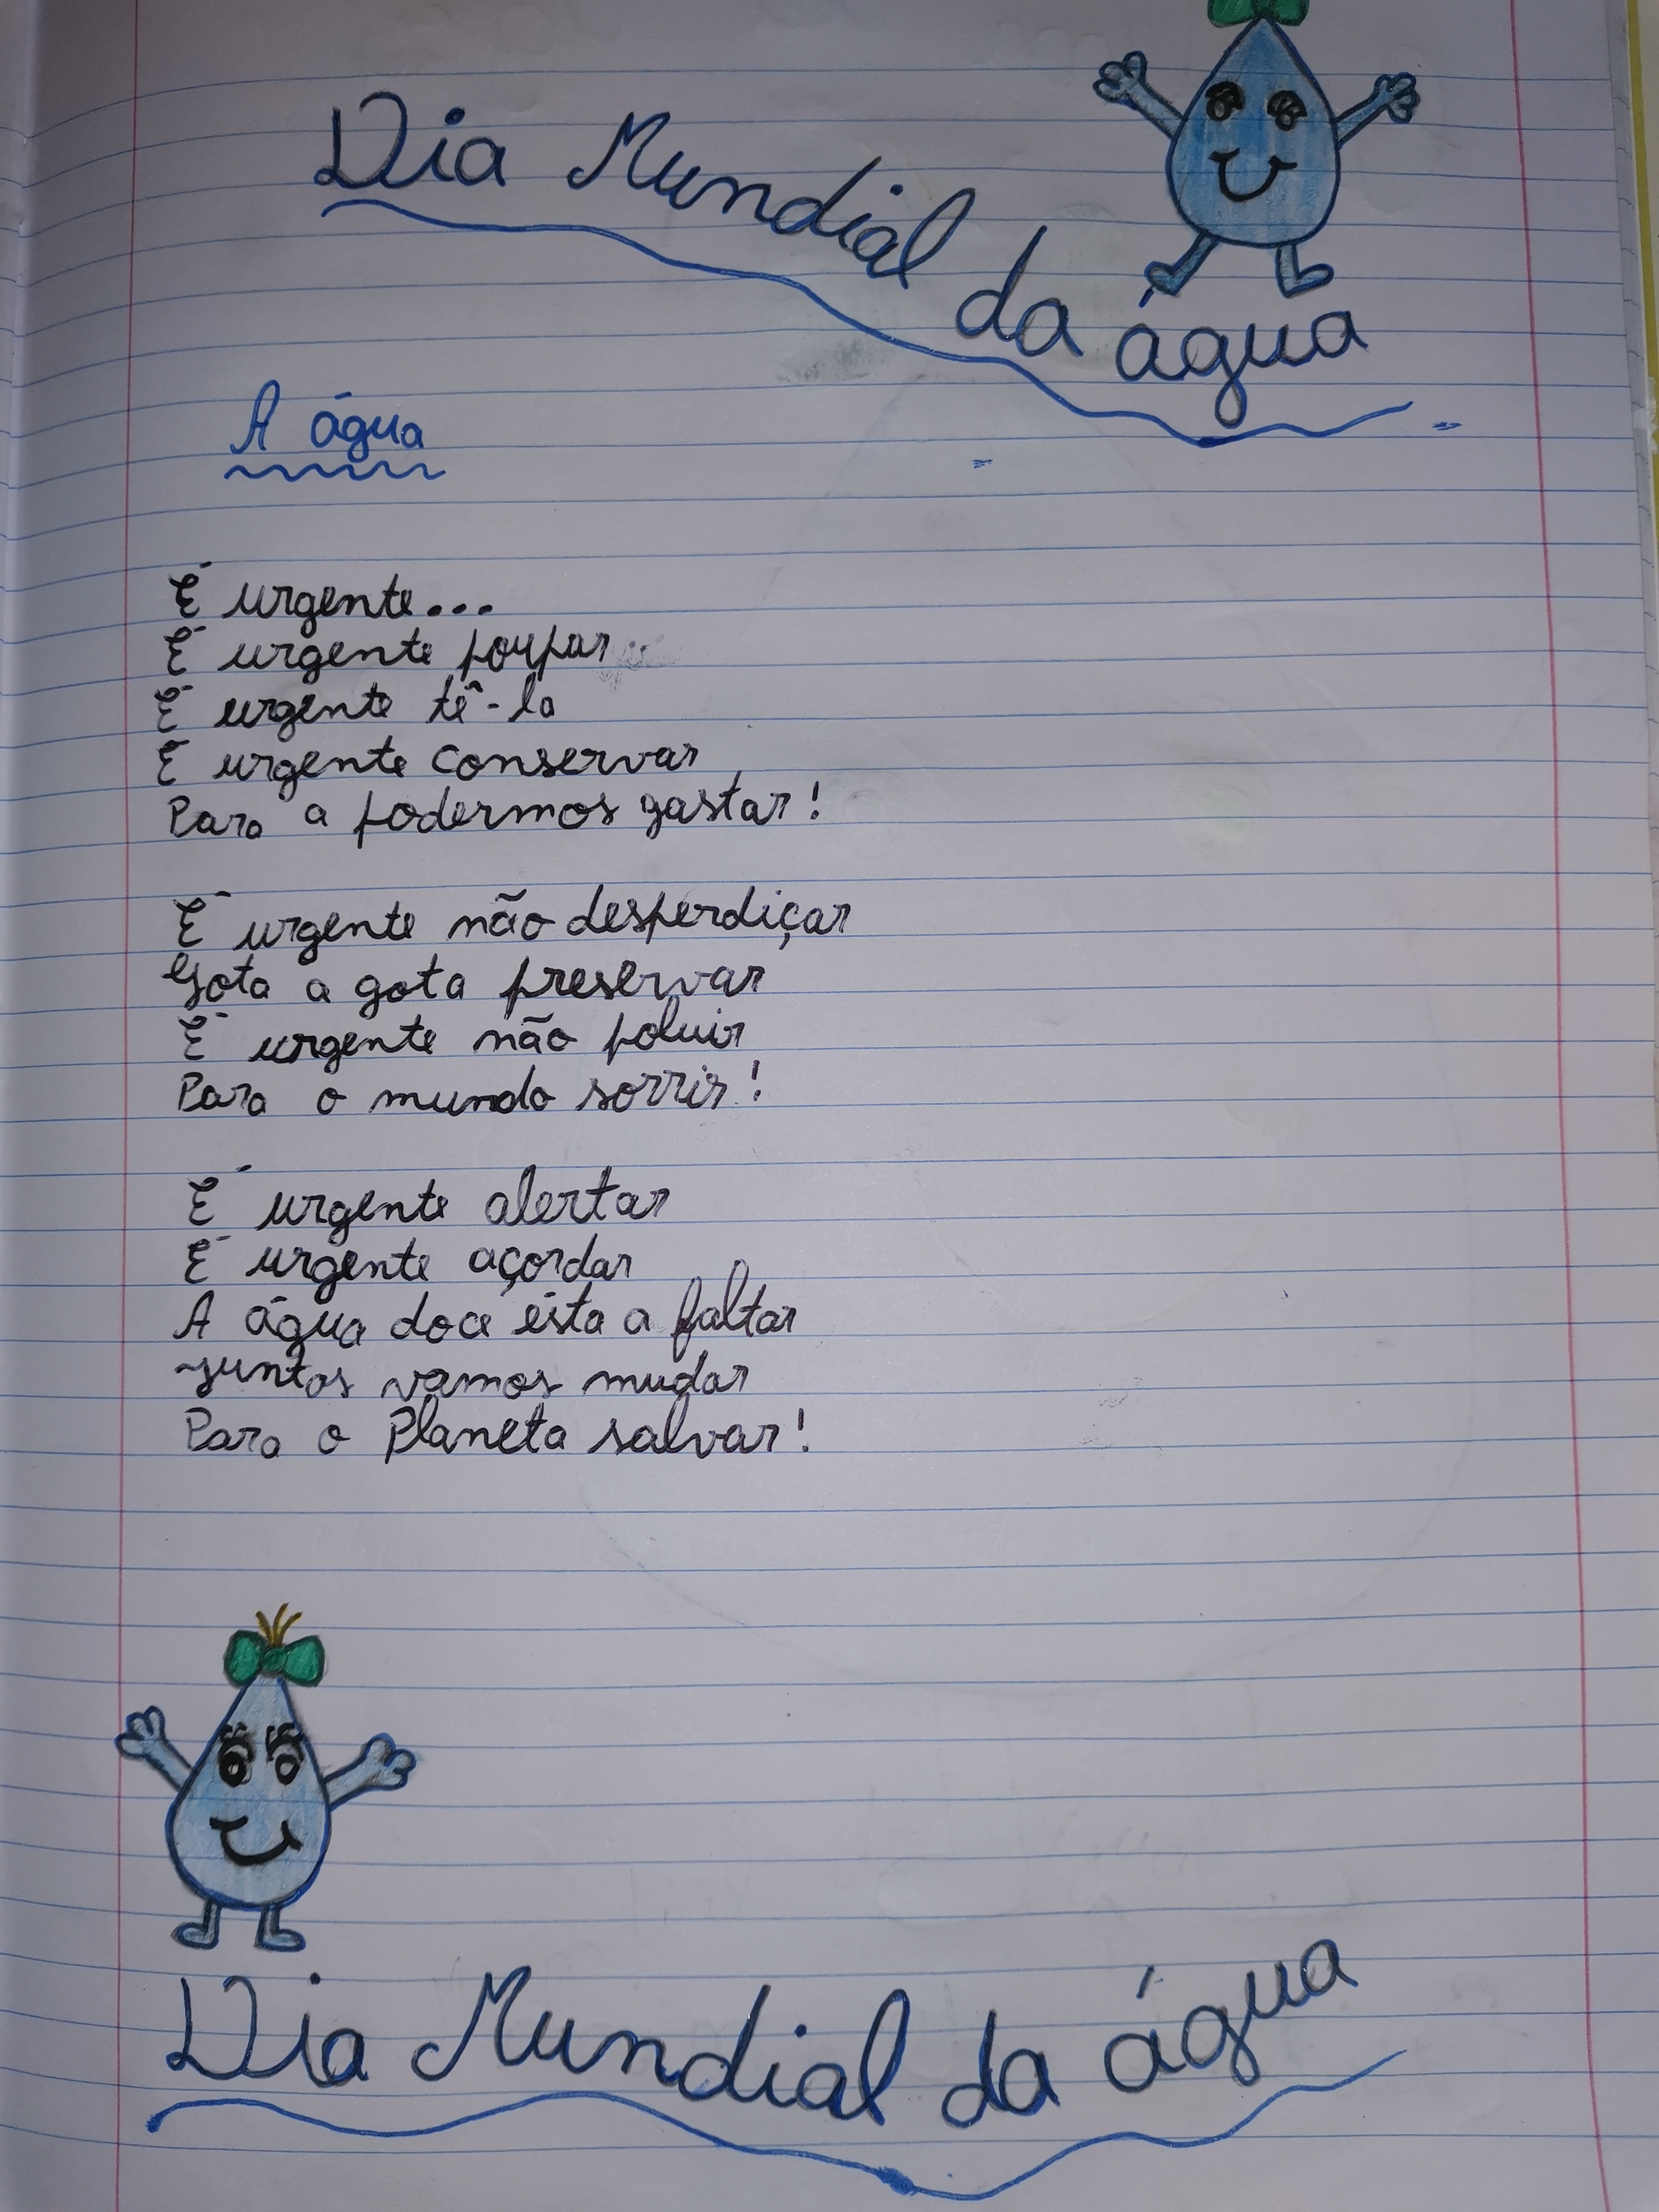 Dia Mundial da água
A água
É urgente...
É urgente poupar
É urgente tê-la
É urgente conservar
Para a podermos gastar!
É urgente não desperdiçar
Gota a gota preservar
É urgente não poluir
Para o mundo sorrir!
É urgente alertar
É urgente açordar
A água doce ésta a faltar
Juntos vamos mudar
Para o Planeta salvar!
Dia Mundial da água